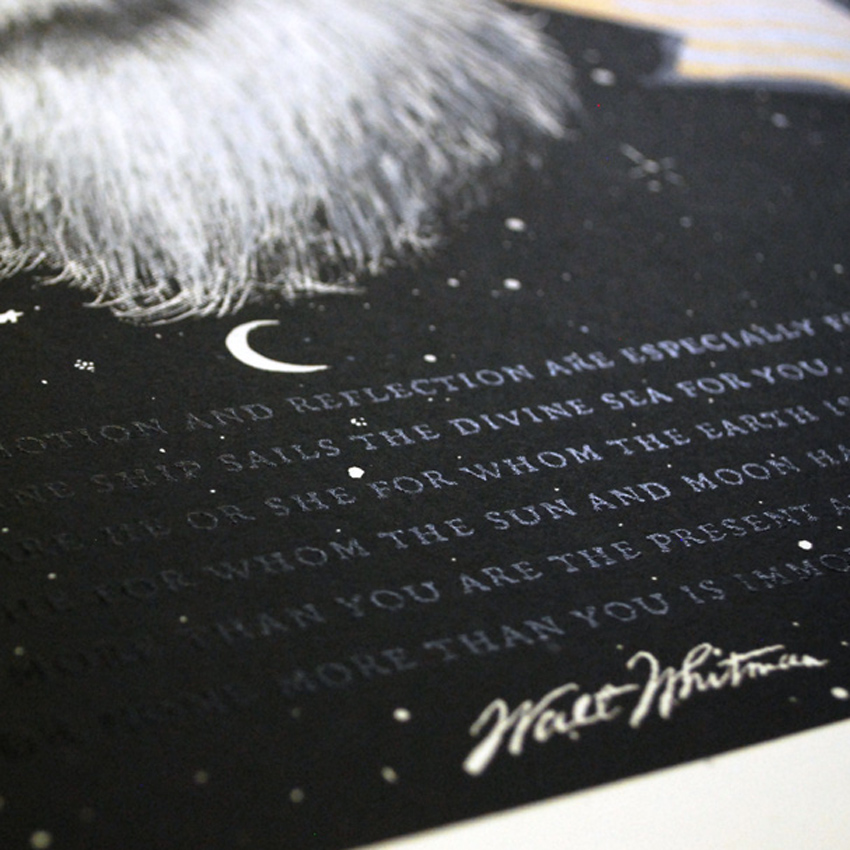 MOTION AND REFLECTION ARE ESPECIALLY FO
NE SHIP SAILS THE DIVINE SEA FOR YOU.
ARE HE OR SHE FOR WHOM THE EARTH IS
HE FOR WHOM THE SUN AND MOON HA
MORE THAN YOU ARE THE PRESENT A
OR PHONE MORE THAN YOU IS IMMO
Walt Whitman